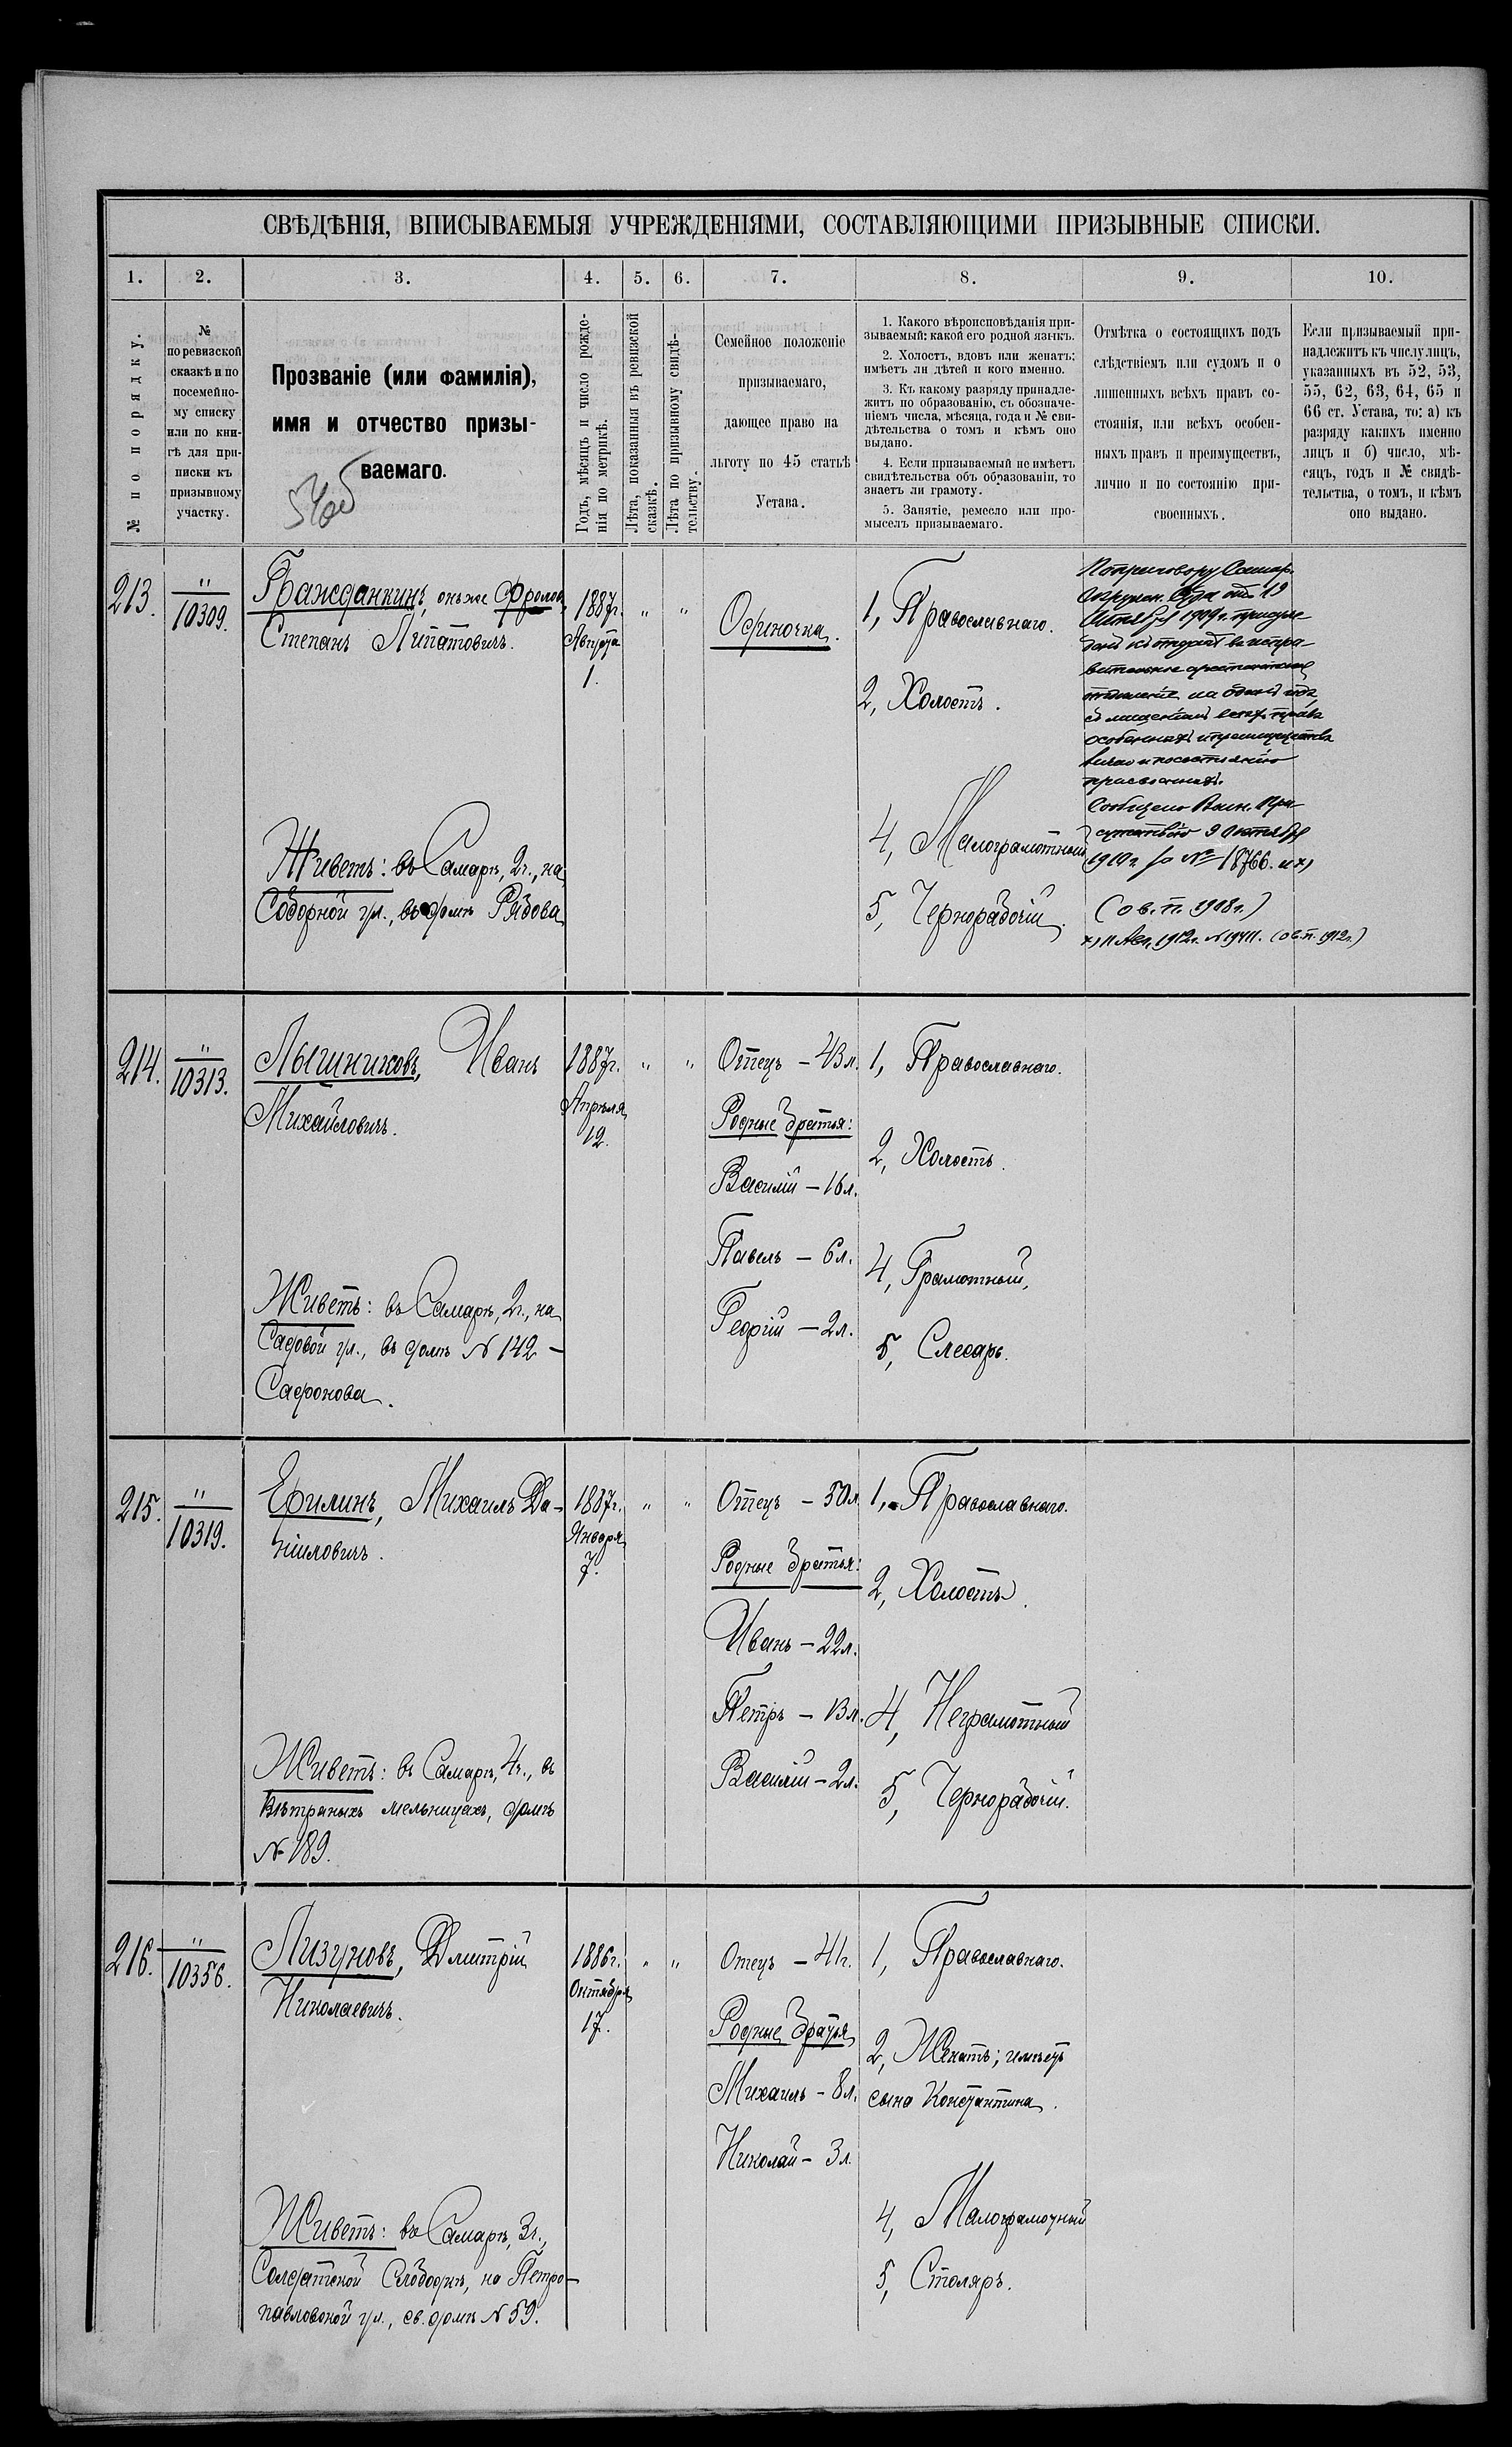 СВѢДѢНІЯ, ВПИСЫВАЕМЫЯ УЧРЕЖДЕНІЯМИ, СОСТАВЛЯЮЩИМИ ПРИЗЫВНЫЕ СПИСКИ.
1. 2. 3. 4. 5. 6. 7. 8. 9. 10.
№ по порядку.
№
по ревизской
сказкѣ и по
посемейно-
му списку
или по кни-
гѣ для при-
писки къ
призывному
участку.
Прозваніе (или фамилія),
имя и отчество призы-
ваемаго.
Годъ, мѣсяцъ и число рожде-
нія по метрикѣ.
Лѣта, показанныя въ ревизской
сказкѣ.
Лѣта по призывному свидѣ-
тельству.
Семейное положеніе
призываемаго,
дающее право на
льготу по 45 статьѣ
Устава.
1. Какого вѣроисповѣданія при-
зываемый; какой его родной языкъ.
2. Холостъ, вдовъ или женатъ;
имѣетъ ли дѣтей и кого именно.
3. Къ какому разряду принадле-
житъ по образованію, съ обозначе-
ніемъ числа, мѣсяца, года и № сви-
дѣтельства о томъ и кѣмъ оно
выдано.
4. Если призываемый не имѣетъ
свидѣтельства объ образованіи, то
знаетъ ли грамоту.
5. Занятіе, ремесло или про-
мыселъ призываемаго.
Отмѣтка о состоящихъ подъ
слѣдствіемъ или судомъ и о
лишенныхъ всѣхъ правъ со-
стоянія, или всѣхъ особен-
ныхъ правъ и преимуществъ,
лично и по состоянію при-
своенныхъ.
Если призываемый при-
надлежитъ къ числу лицъ,
указанныхъ въ 52, 53,
55, 62, 63, 64, 65 и
66 ст. Устава, то: а) къ
разряду какихъ именно
лицъ и б) число, мѣ-
сяцъ, годъ и № свидѣ-
тельства, о томъ, и кѣмъ
оно выдано.
213.
"
10309.
Гражданкинъ, онъ же Фроловъ,
Степанъ Липатовичъ.
Живетъ: въ Самарѣ, 2ч., на
Соборной ул., въ домѣ Рядова
1887г.
Августа
1.
" "
Одиночка.
1, Православнаго.
2, Холостъ.
4, Малограмотный
5, Чернорабочій.
По приговору Самар.
Окружн. Суда отъ 19
1909г. присуж-
денъ къ отдачѣ въ испра-
вительное арестантское
отдѣленіе на одинъ годъ
съ лишеніемъ всѣхъ правъ
особенныхъ и преимуществъ
лично и по состоянію
присвоенныхъ.
Сообщено Воин. При-
сутствію 9 Октября
1910г. за № 18766. и х)
(о в. п. 1908г.)
х) 11 Авг. 1912г. № 19411. (о в. п. 1912г.)
214.
"
10313.
Лышниковъ, Иванъ
Михайловичъ.
Живетъ: въ Самарѣ, 2ч., на
Садовой ул., въ домѣ № 142 –
Сафонова.
1887г.
Апрѣля
12.
" "
Отецъ – 43л.
Родные братья:
Василій – 16л.
Павелъ – 6л.
Георгій – 2л.
1, Православнаго.
2, Холостъ.
4, Грамотный,
5, Слесарь.
215.
"
10319.
Ефилинъ, Михаилъ Да-
ніиловичъ.
Живетъ: въ Самарѣ, 4ч., въ
Вѣтряныхъ мельницахъ, домъ
№ 189.
1887г.
Января
7.
" "
Отецъ – 50л.
Родные братья:
Иванъ – 22л.
Петръ – 13л.
Василій – 2л.
1, Православнаго.
2, Холостъ.
4, Неграмотный
5, Чернорабочій.
216.
"
10356.
Лизуновъ, Дмитрій
Николаевичъ.
Живетъ: въ Самарѣ, 3ч.,
Солдатской Слободкѣ, на Петро-
павловской ул., св. домѣ № 59.
1886г.
Октября
17.
" "
Отецъ – 41г.
Родные братья
Михаилъ – 8л.
Николай – 3л.
1, Православнаго.
2, Женатъ; имѣетъ
сына Константина.
4, Малограмотный
5, Столяръ.